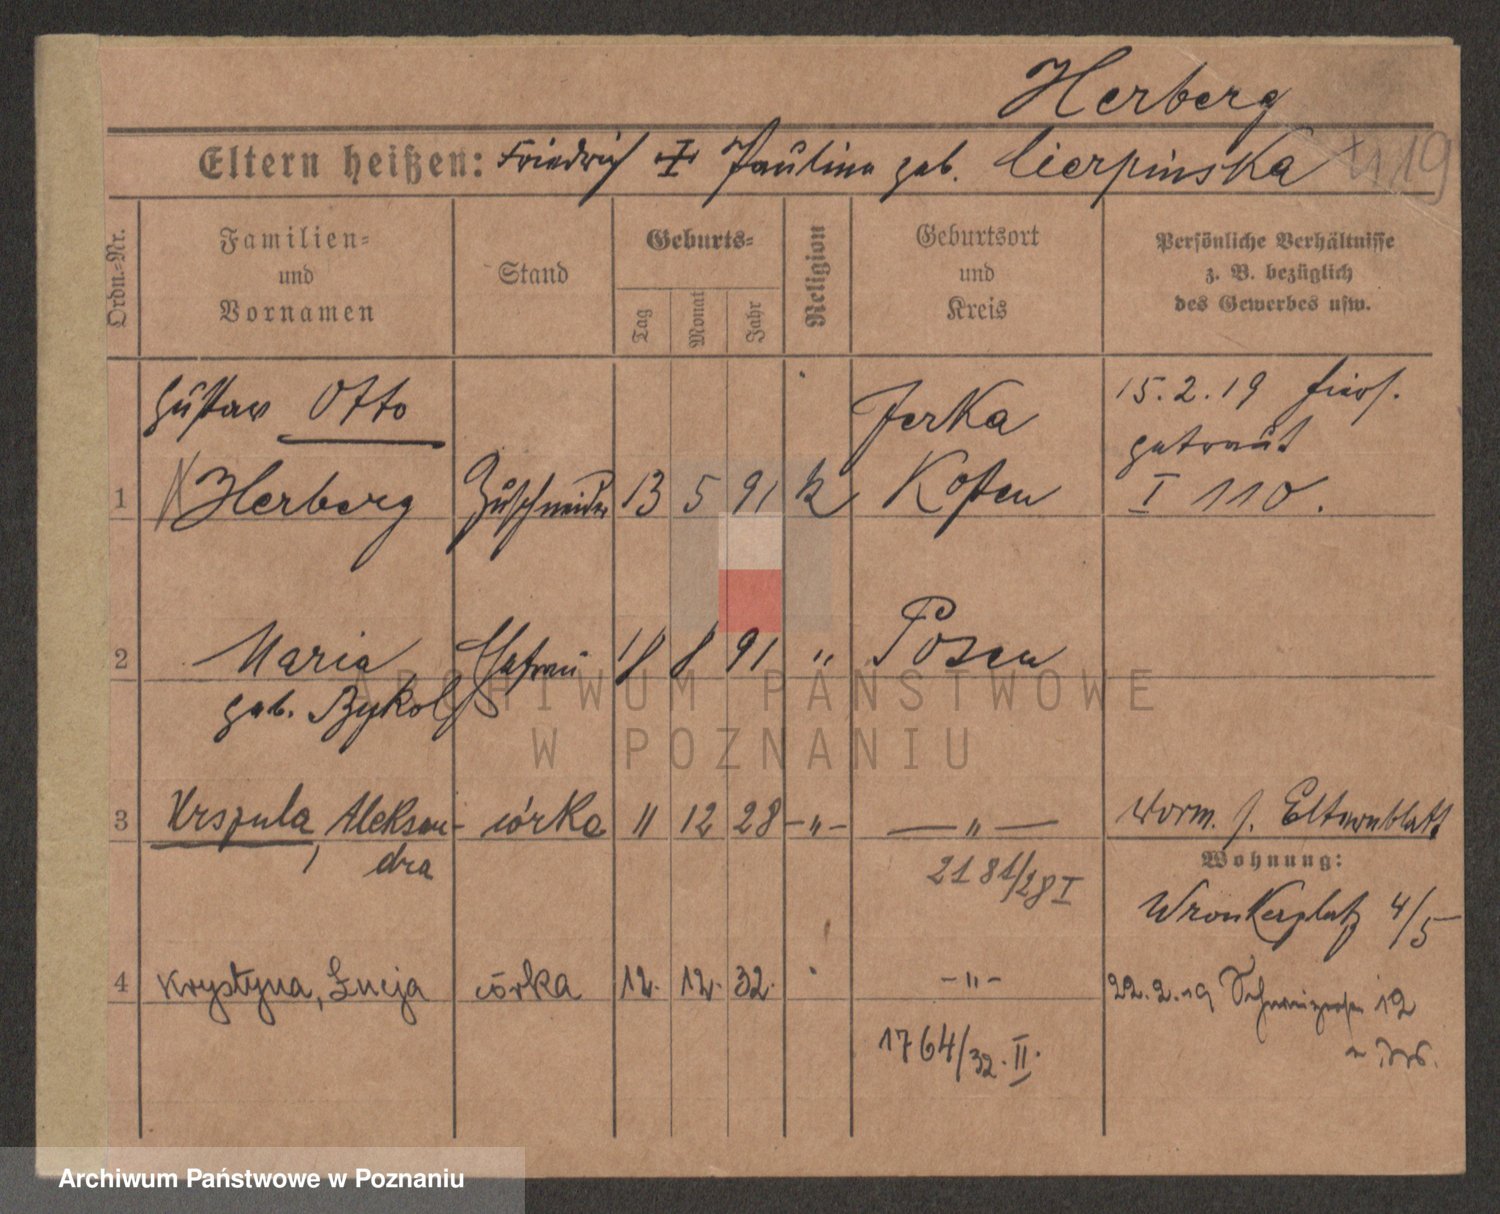 Herberg
Eltern heißen: Friedrich Paulina geb. Cierpinska
419
Ordn.-Nr.
Familien-
und
Vornamen
Stand
Geburts-
Tag
Monat
Jahr
Religion
Geburtsort
und
Kreis
Persönliche Verhältnisse
z. B. bezüglich
des Gewerbes usw.
Gustav Otto
Jerka
15.2.19 hier.
getraut
1 Herberg Zuschneider 13 5 91 k Kosten I 110.
2 Maria Ehefrau 18 8 91 " Posen
geb. Bykol
3 Urszula, Aleksan- córka 11 12 28 -"- -"- vorm. s. Elternblatt
dra
2181/28 I
Wohnung:
Wronkerplatz 4/5
4 Krystyna, Łucja córka 12. 12. 32. -"- 22.2.19 12
1764/32. II.
ARCHIWUM PAŃSTWOWE
W POZNANIU
Archiwum Państwowe w Poznaniu